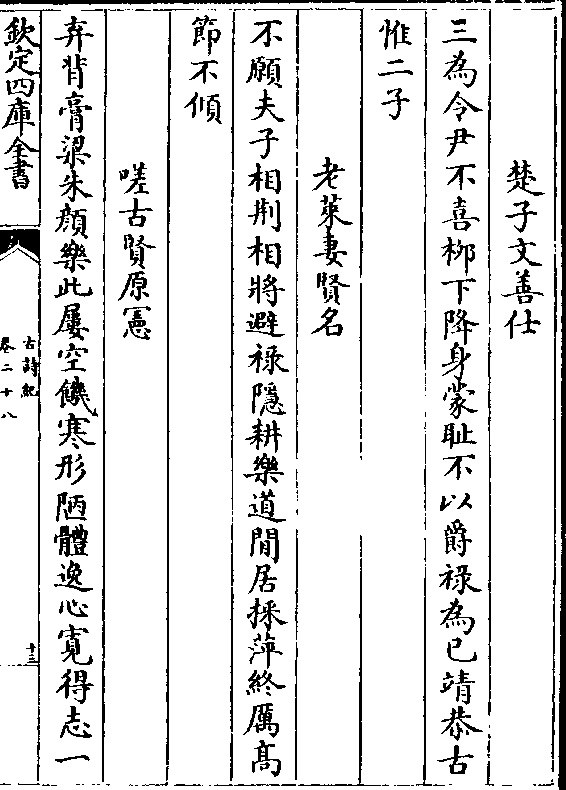 楚子文善仕
三為令尹不喜柳下降身蒙耻不以爵禄為己靖恭古
惟二子
老萊妻賢名
不願夫子相荆相將避禄隱耕樂道閒居採萍終厲髙
節不傾
嗟古賢原憲
弃背膏粱朱顔樂此屢空饑寒形陋體逸心寛得志一
欽定四庫全書
古詩紀
卷二十八
十三